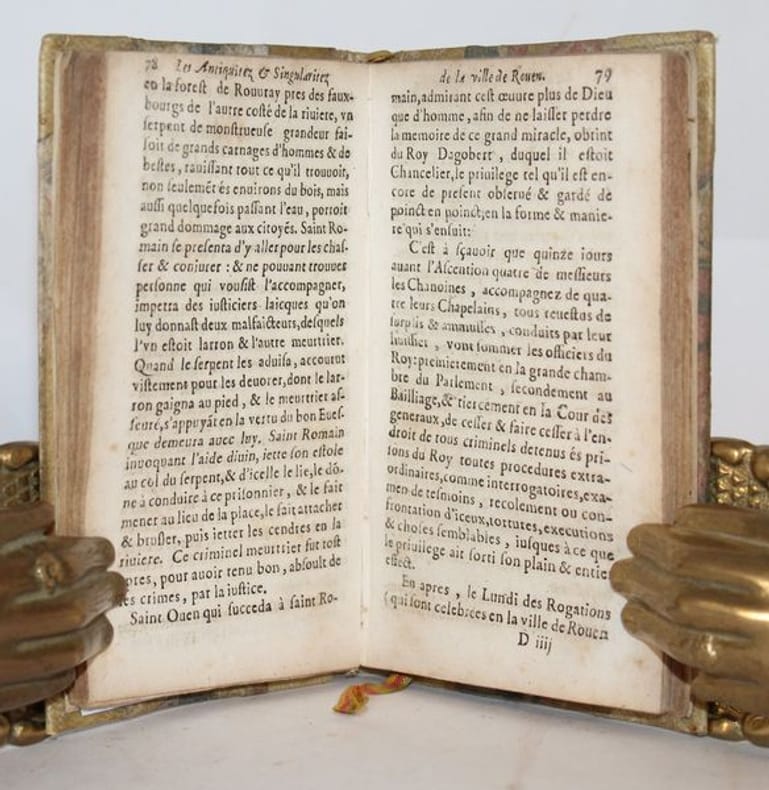 78 Les Antiquitez & Singularitez
en la forest de Rouuray pres des faux-
bourgs de l'autre costé de la riuiere, vn
serpent de monstrueuse grandeur fai-
soit de grands carnages d'hommes & de
bestes, rauissant tout ce qu'il trouuoit,
non seulemēt és enuirons du bois, mais
aussi quelquefois passant l'eau, portoit
grand dommage aux citoyēs. Saint Ro-
main se presenta d'y aller pour les chas-
ser & coniurer : & ne pouuant trouuer
personne qui vousist l'accompagner,
impetra des iusticiers laicques qu'on
luy donnast deux malfaicteurs, desquels
l'vn estoit larron & l'autre meurtrier.
Quand le serpent les aduisa, accourut
vistement pour les deuorer, dont le lar-
ron gaigna au pied, & le meurtrier as-
seuré, s'appuyāt en la vertu du bon Eues-
que demeura auec luy. Saint Romain
inuoquant l'aide diuin, iette son estole
au col du serpent, & d'icelle le lie, le dō-
ne à conduire à ce prisonnier, & le fait
mener au lieu de la place, le fait attacher
& brusler, puis ietter les cendres en la
riuiere. Ce criminel meurtrier fut tost
apres, pour auoir tenu bon, absoult de
ses crimes, par la iustice.
Saint Ouen qui succeda à saint Ro-
de la ville de Rouen. 79
main, admirant cest œuure plus de Dieu
que d'homme, afin de ne laisser perdre
la memoire de ce grand miracle, obtint
du Roy Dagobert, duquel il estoit
Chancelier, le priuilege tel qu'il est en-
core de present obserué & gardé de
poinct en poinct, en la forme & manie-
re qui s'ensuit:
C'est à sçauoir que quinze iours
auant l'Ascention quatre de messieurs
les Chanoines, accompagnez de qua-
tre leurs Chapelains, tous reuestus de
surplis & aumusses, conduits par leur
huissier, vont sommer les officiers du
Roy: premierement en la grande cham-
bre du Parlement, secondement au
Bailliage, & tiercement en la Cour des
generaux, de cesser & faire cesser à l'en-
droit de tous criminels detenus és pri-
sons du Roy toutes procedures extra-
ordinaires, comme interrogatoires, exa-
men de tesmoins, recolement ou con-
frontation d'iceux, tortures, executions
& choses semblables, iusques à ce que
le priuilege ait sorti son plain & entier
effect.
En apres, le Lundi des Rogations
(qui sont celebrées en la ville de Rouen
D iiij